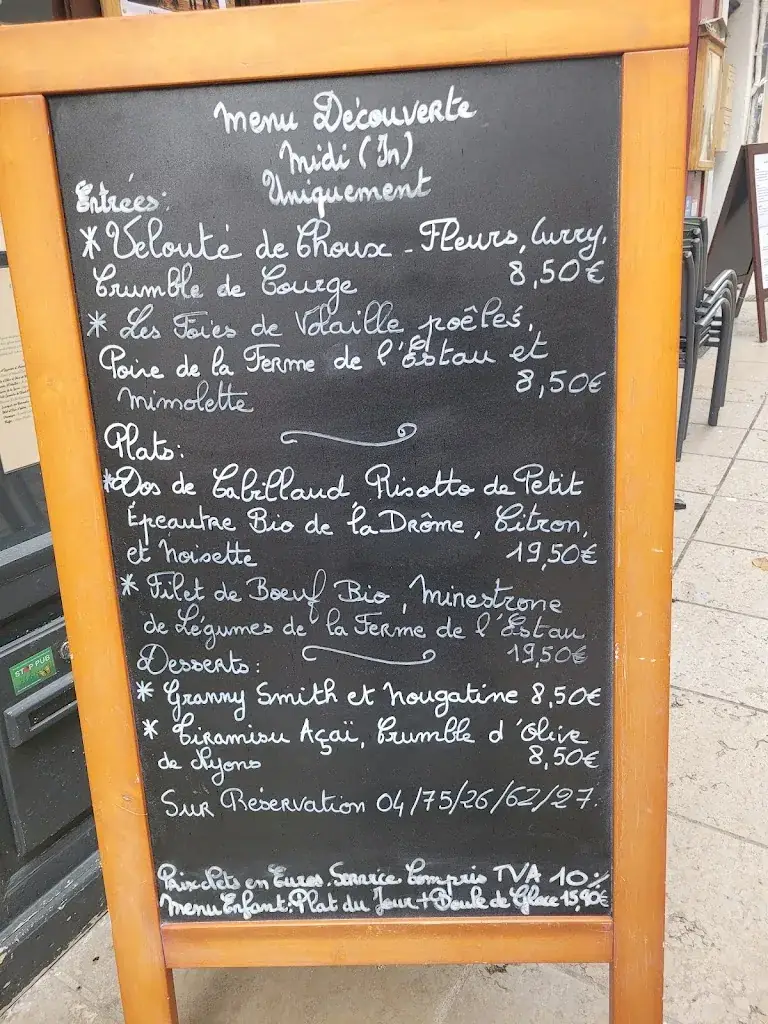 Menu Découverte
Midi (In)
Uniquement
Entrées:
* Velouté de Choux - Fleurs, Curry,
Crumble de Courge 8,50€
* Les Foies de Volaille poêlés,
Poire de la Ferme de l'Estau et
Mimolette 8,50€
Plats:
* Dos de Cabillaud, Risotto de Petit
Épeautre Bio de la Drôme, Citron,
et Noisette 19,50€
* Filet de Boeuf Bio, Minestrone
de Légumes de la Ferme de l'Estau
19,50€
Desserts:
* Granny Smith et Nougatine 8,50€
* Tiramisu Açaï, Crumble d'Olive
de Nyons 8,50€
Sur Réservation 04/75/26/62/27.
Prix Nets en Euros. Service Compris TVA 10%
Menu Enfant: Plat du Jour + Boule de Glace 15,90€
STOP PUB